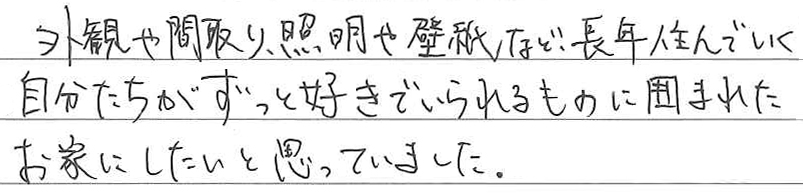 外観や間取り、照明や壁紙など、長年住んでいく
自分たちがずっと好きでいられるものに囲まれた
お家にしたいと思っていました。